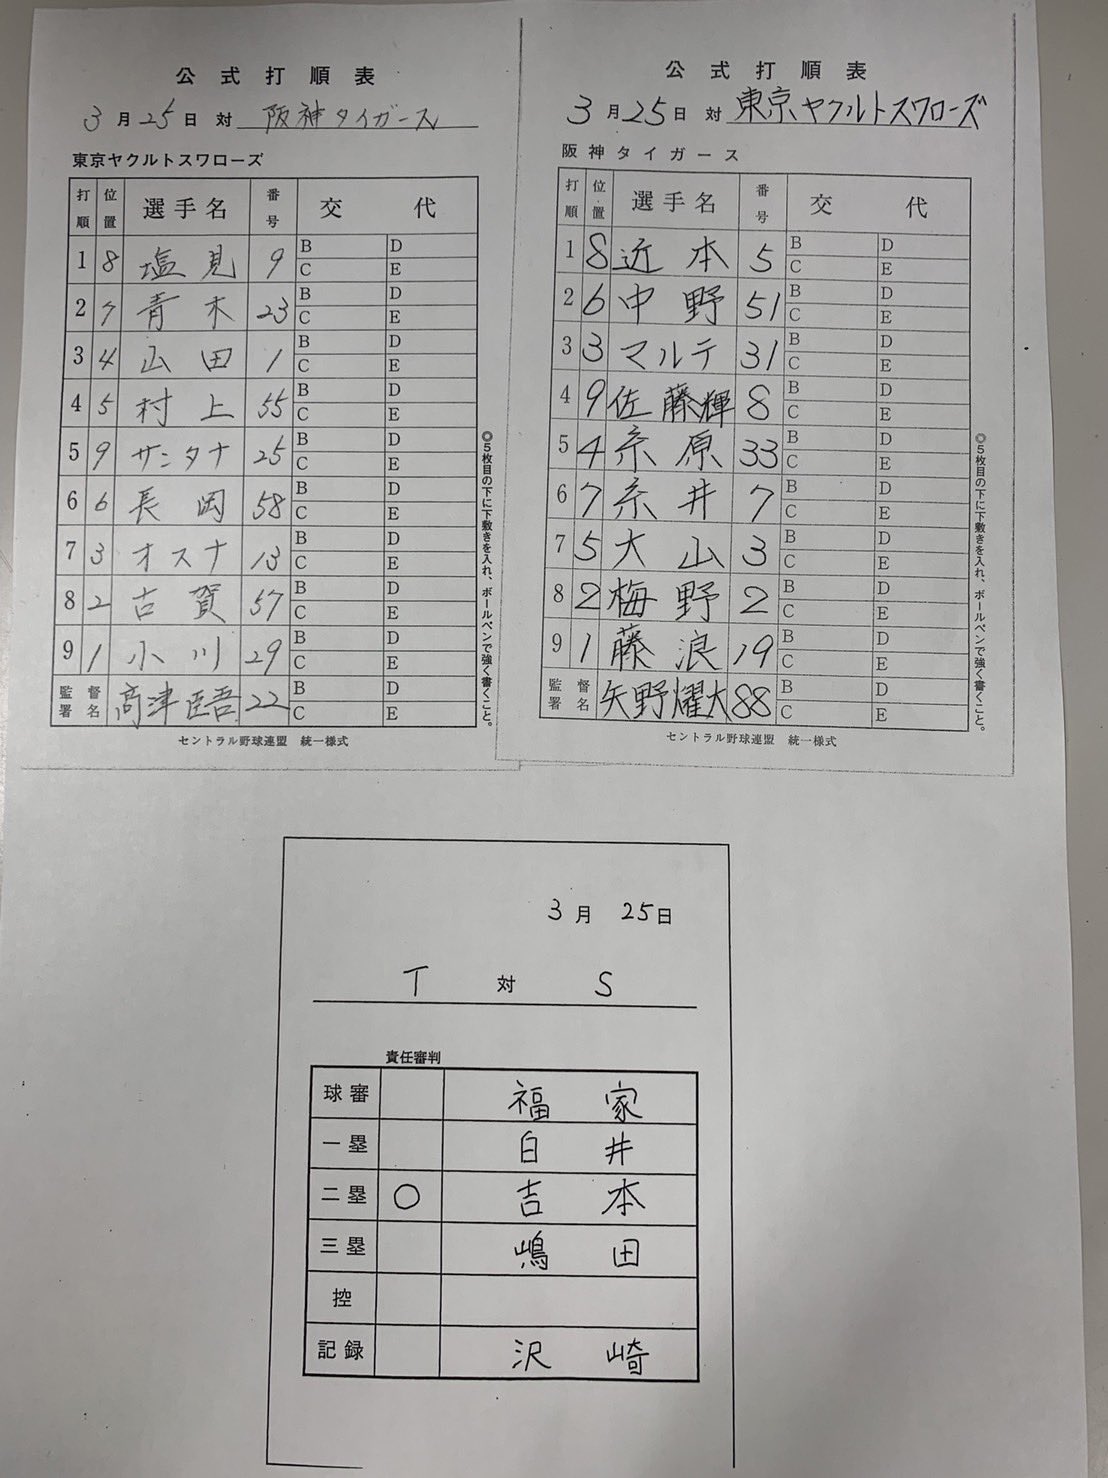 公式打順表
3月25日 対 阪神タイガース
東京ヤクルトスワローズ
打順 位置 選手名 番号 交代
1 8 塩見 9 B D C E
2 7 青木 23 B D C E
3 4 山田 1 B D C E
4 5 村上 55 B D C E
5 9 サンタナ 25 B D C E
6 6 長岡 58 B D C E
7 3 オスナ 13 B D C E
8 2 古賀 57 B D C E
9 1 小川 29 B D C E
監督署名 高津臣吾 22 B D C E
セントラル野球連盟 統一様式
◎5枚目の下に下敷きを入れ、ボールペンで強く書くこと。
公式打順表
3月25日 対 東京ヤクルトスワローズ
阪神タイガース
打順 位置 選手名 番号 交代
1 8 近本 5 B D C E
2 6 中野 51 B D C E
3 3 マルテ 31 B D C E
4 9 佐藤輝 8 B D C E
5 4 糸原 33 B D C E
6 7 糸井 7 B D C E
7 5 大山 3 B D C E
8 2 梅野 2 B D C E
9 1 藤浪 19 B D C E
監督署名 矢野燿大 88 B D C E
セントラル野球連盟 統一様式
◎5枚目の下に下敷きを入れ、ボールペンで強く書くこと。
3月 25日
T 対 S
責任審判
球審 福家
一塁 白井
二塁 ○ 吉本
三塁 嶋田
控
記録 沢崎